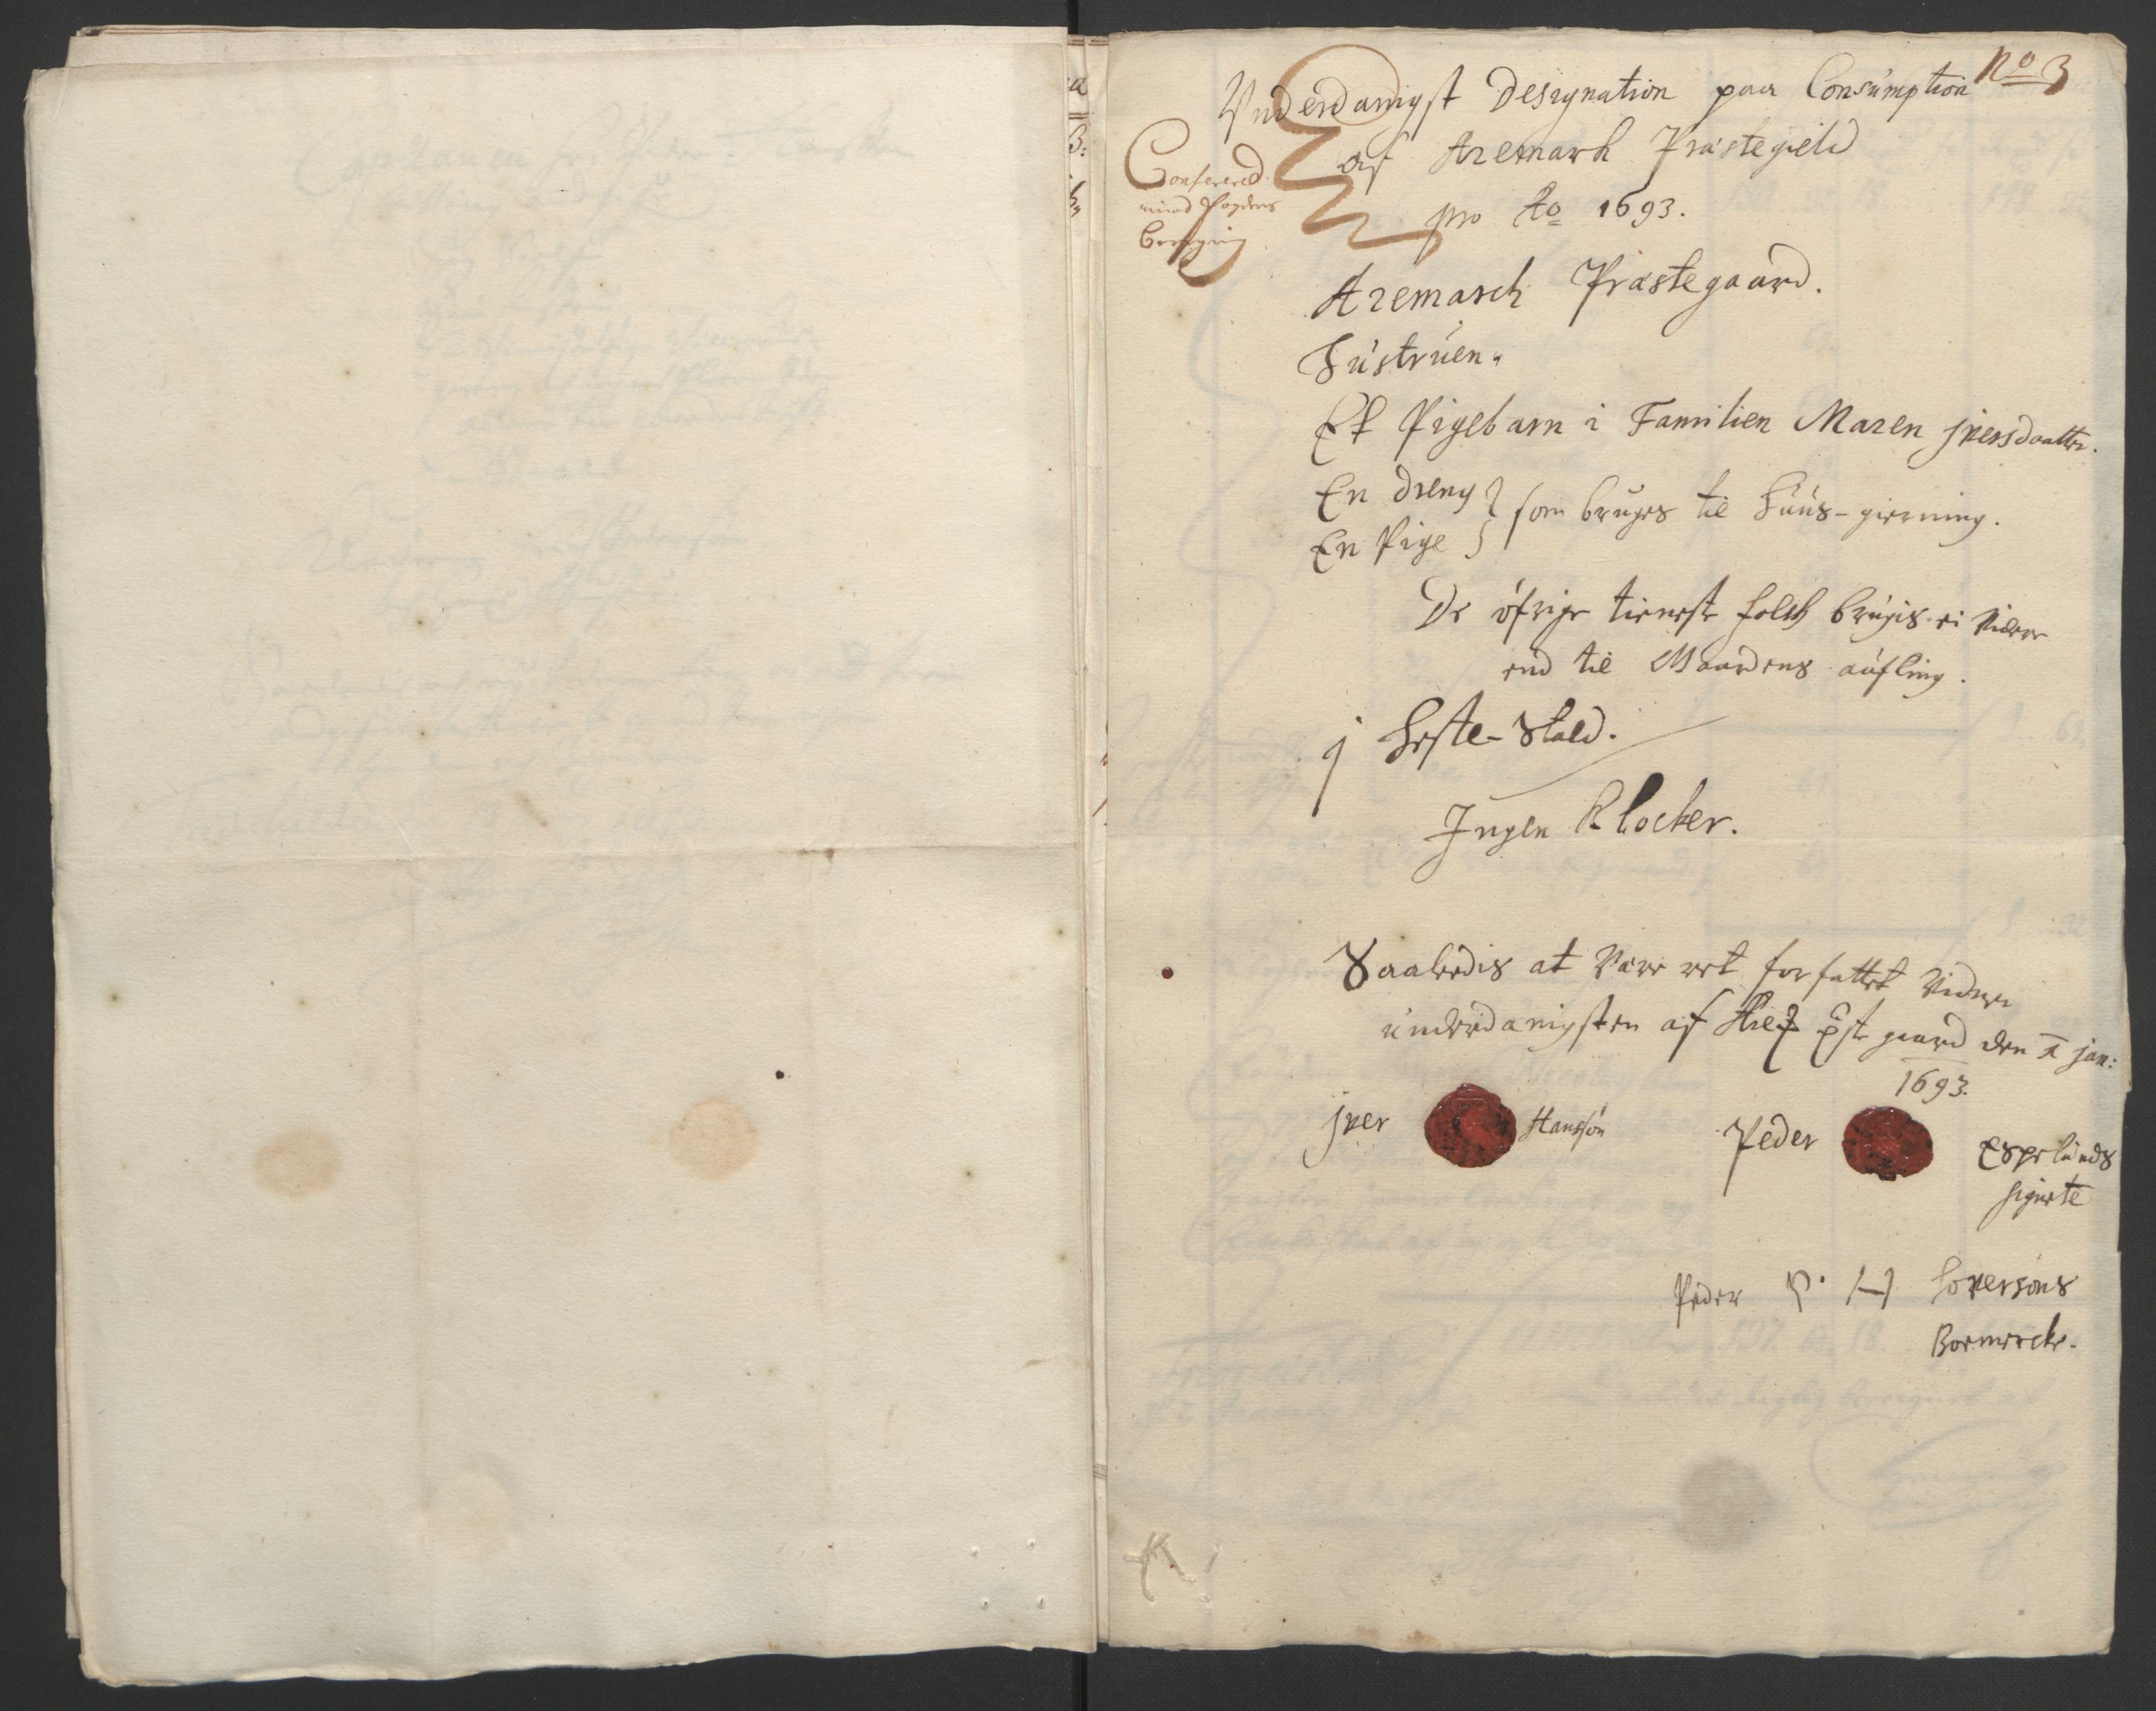 No 3
Underdanigst Designation paa Consumption
af Aremark Præstegield
pro Ao 1693.
Conferered
med Fogdens
Aremarch Præstegaard.
Hustruen.
Et Pigebarn i Familien Maren jversdaatter.
En dreng
En Pige } som bruges til Huus-gierning.
De öfrige tieneste folch brugis ei videre
end til Gaardens aufling.
j Heste-Stald.
Ingen Klocker.
Saaledis at være ret forfattet vidner
underdanigsten af gaard den 1 jan:
1693.
jver Hanssön Peder Espelunds
signete
Peder P. H Joversöns
Bormercke.